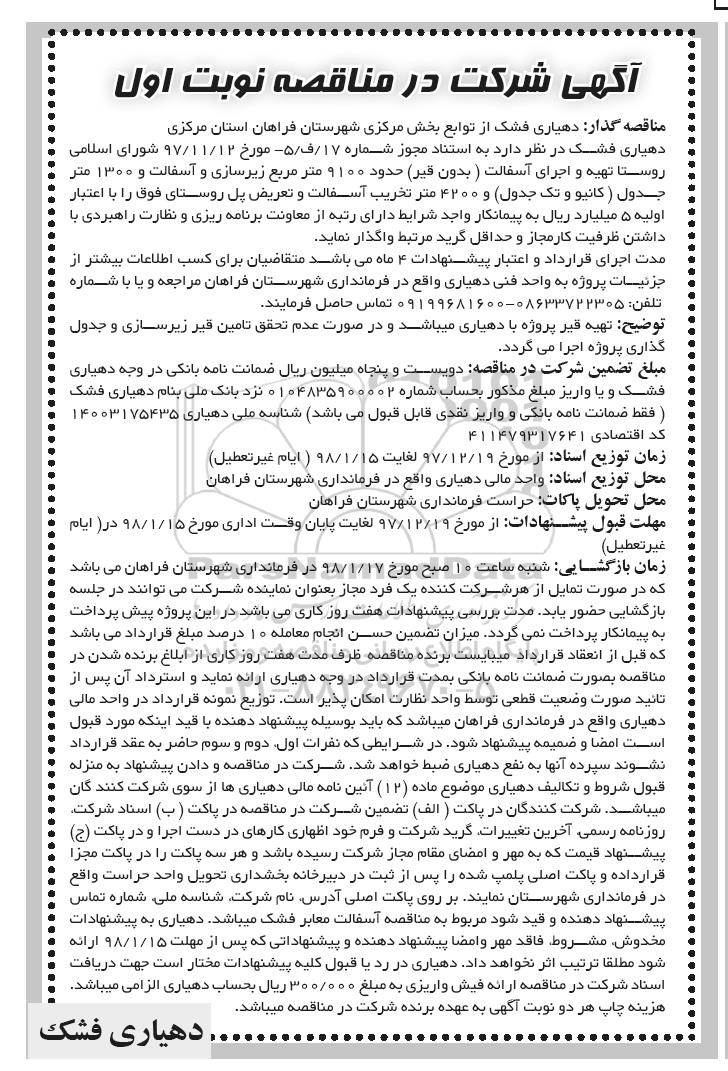 آگهی شرکت در مناقصه نوبت اول
مناقصه گذار: دهیاری فشک از توابع بخش مرکزی شهرستان فراهان استان مرکزی
دهیاری فشک در نظر دارد به استناد مجوز شماره ۱۷/ف/۵- مورخ ۹۷/۱۱/۱۲ شورای اسلامی
روستا تهیه و اجرای آسفالت ( بدون قیر) حدود ۹۱۰۰ متر مربع زیرسازی و آسفالت و ۱۳۰۰ متر
جدول ( کانیو و تک جدول) و ۴۲۰۰ متر تخریب آسفالت و تعریض پل روستای فوق را با اعتبار
اولیه ۵ میلیارد ریال به پیمانکار واجد شرایط دارای رتبه از معاونت برنامه ریزی و نظارت راهبردی با
داشتن ظرفیت کارمجاز و حداقل گرید مرتبط واگذار نماید.
مدت اجرای قرارداد و اعتبار پیشنهادات ۴ ماه می باشد متقاضیان برای کسب اطلاعات بیشتر از
جزئیات پروژه به واحد فنی دهیاری واقع در فرمانداری شهرستان فراهان مراجعه و یا با شماره
تلفن: ۰۸۶۳۳۷۲۲۳۰۵-۰۹۱۹۹۶۸۱۶۰۰ تماس حاصل فرمایند.
توضیح: تهیه قیر پروژه با دهیاری میباشد و در صورت عدم تحقق تامین قیر زیرسازی و جدول
گذاری پروژه اجرا می گردد.
مبلغ تضمین شرکت در مناقصه: دویست و پنجاه میلیون ریال ضمانت نامه بانکی در وجه دهیاری
فشک و یا واریز مبلغ مذکور بحساب شماره ۰۱۰۴۸۳۵۹۰۰۰۰۲ نزد بانک ملی بنام دهیاری فشک
( فقط ضمانت نامه بانکی و واریز نقدی قابل قبول می باشد) شناسه ملی دهیاری ۱۴۰۰۳۱۷۵۴۳۵
کد اقتصادی ۴۱۱۴۷۹۳۱۷۶۴۱
زمان توزیع اسناد: از مورخ ۹۷/۱۲/۱۹ لغایت ۹۸/۱/۱۵ ( ایام غیرتعطیل)
محل توزیع اسناد: واحد مالی دهیاری واقع در فرمانداری شهرستان فراهان
محل تحویل پاکات: حراست فرمانداری شهرستان فراهان
مهلت قبول پیشنهادات: از مورخ ۹۷/۱۲/۱۹ لغایت پایان وقت اداری مورخ ۹۸/۱/۱۵ در( ایام
غیرتعطیل)
زمان بازگشایی: شنبه ساعت ۱۰ صبح مورخ ۹۸/۱/۱۷ در فرمانداری شهرستان فراهان می باشد
که در صورت تمایل از هرشرکت کننده یک فرد مجاز بعنوان نماینده شرکت می توانند در جلسه
بازگشایی حضور یابد. مدت بررسی پیشنهادات هفت روز کاری می باشد در این پروژه پیش پرداخت
به پیمانکار پرداخت نمی گردد. میزان تضمین حسن انجام معامله ۱۰ درصد مبلغ قرارداد می باشد
که قبل از انعقاد قرارداد میبایست برنده مناقصه ظرف مدت هفت روز کاری از ابلاغ برنده شدن در
مناقصه بصورت ضمانت نامه بانکی بمدت قرارداد در وجه دهیاری ارائه نماید و استرداد آن پس از
تائید صورت وضعیت قطعی توسط واحد نظارت امکان پذیر است. توزیع نمونه قرارداد در واحد مالی
دهیاری واقع در فرمانداری فراهان میباشد که باید بوسیله پیشنهاد دهنده با قید اینکه مورد قبول
است امضا و ضمیمه پیشنهاد شود. در شرایطی که نفرات اول، دوم و سوم حاضر به عقد قرارداد
نشوند سپرده آنها به نفع دهیاری ضبط خواهد شد. شرکت در مناقصه و دادن پیشنهاد به منزله
قبول شروط و تکالیف دهیاری موضوع ماده (۱۲) آئین نامه مالی دهیاری ها از سوی شرکت کنند گان
میباشد. شرکت کنندگان در پاکت ( الف) تضمین شرکت در مناقصه در پاکت ( ب) اسناد شرکت،
روزنامه رسمی، آخرین تغییرات، گرید شرکت و فرم خود اظهاری کارهای در دست اجرا و در پاکت (ج)
پیشنهاد قیمت که به مهر و امضای مقام مجاز شرکت رسیده باشد و هر سه پاکت را در پاکت مجزا
قرارداده و پاکت اصلی پلمپ شده را پس از ثبت در دبیرخانه بخشداری تحویل واحد حراست واقع
در فرمانداری شهرستان نمایند. بر روی پاکت اصلی آدرس، نام شرکت، شناسه ملی، شماره تماس
پیشنهاد دهنده و قید شود مربوط به مناقصه آسفالت معابر فشک میباشد. دهیاری به پیشنهادات
مخدوش، مشروط، فاقد مهر وامضا پیشنهاد دهنده و پیشنهاداتی که پس از مهلت ۹۸/۱/۱۵ ارائه
شود مطلقا ترتیب اثر نخواهد داد. دهیاری در رد یا قبول کلیه پیشنهادات مختار است جهت دریافت
اسناد شرکت در مناقصه ارائه فیش واریزی به مبلغ ۳۰۰/۰۰۰ ریال بحساب دهیاری الزامی میباشد.
هزینه چاپ هر دو نوبت آگهی به عهده برنده شرکت در مناقصه میباشد.
دهیاری فشک